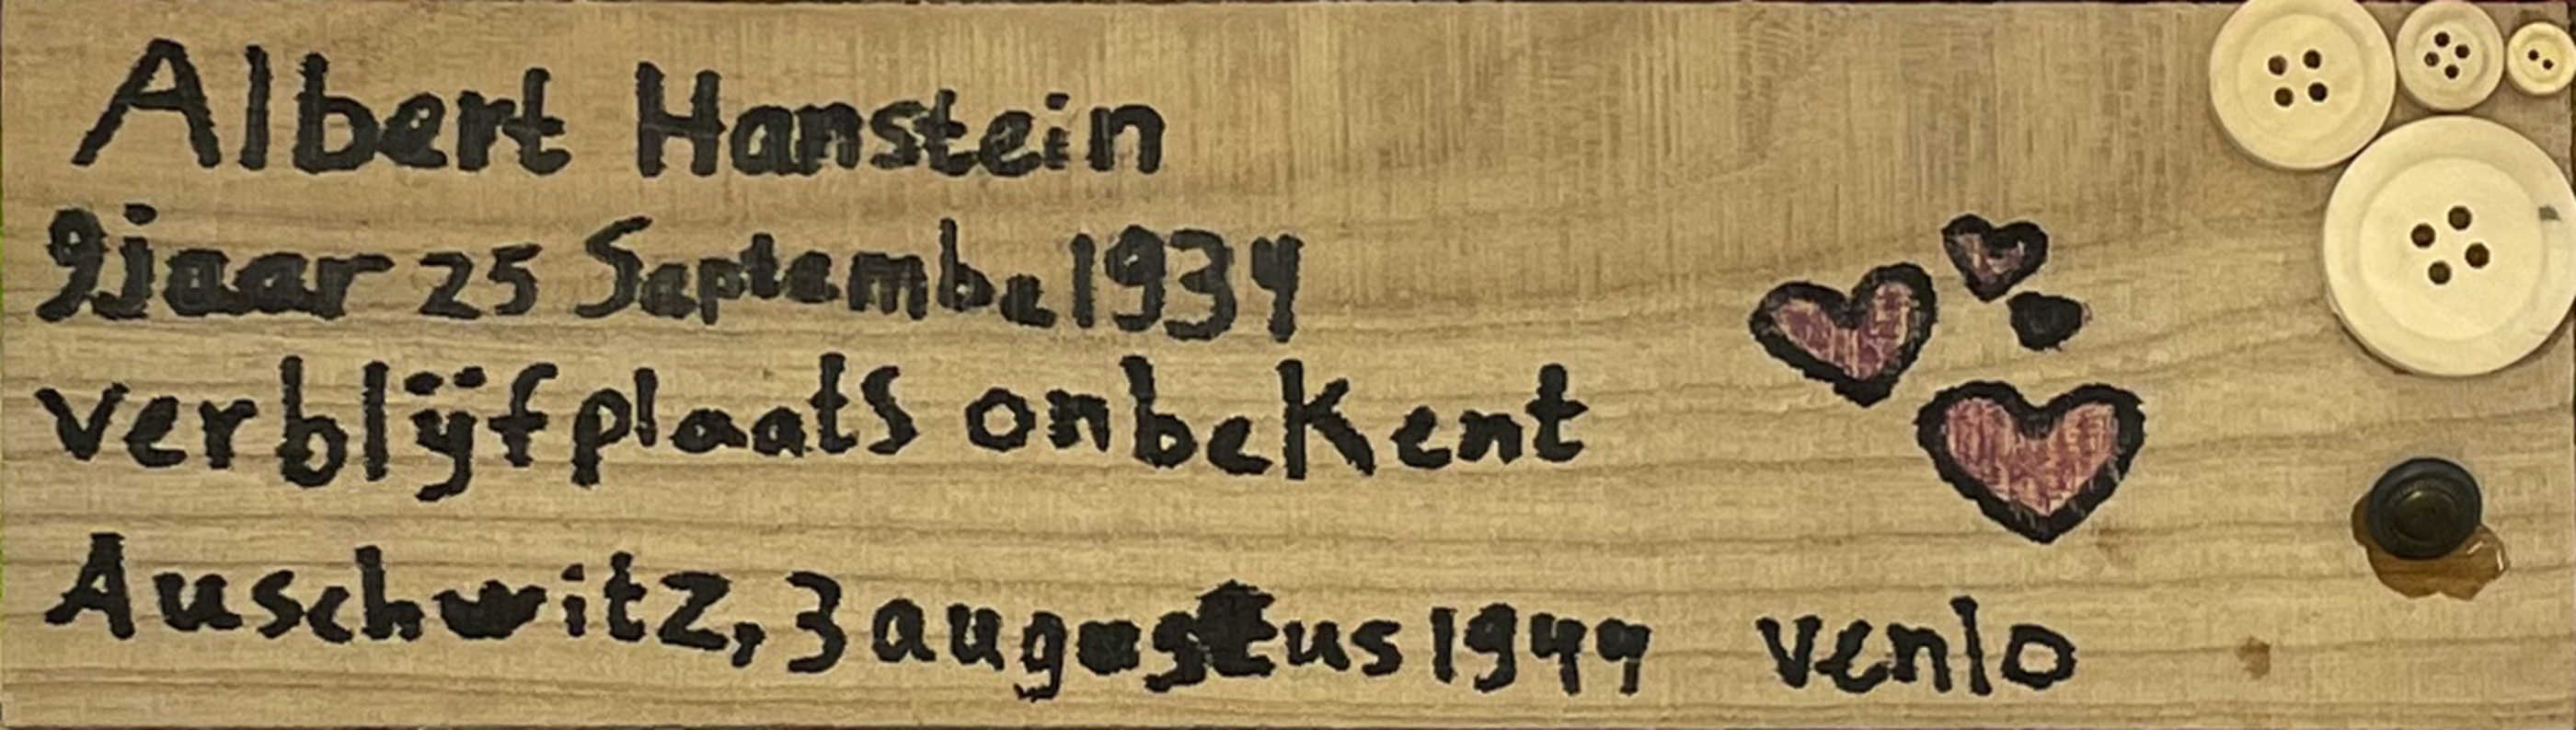 Albert Hanstein
9jaar 25 Septembe 1934
verblijfplaats onbekent
Auschwitz, 3 augustus 1944 venlo